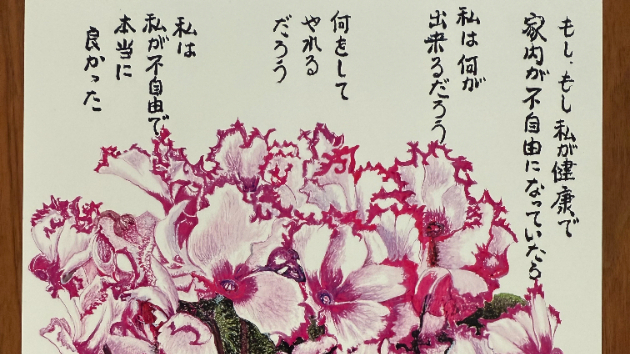 もし、もし 私が健康で
家内が不自由になっていたら
私は何が
出来るだろう
何をして
やれる
だろう
私は
私が不自由で
本当に
良かった